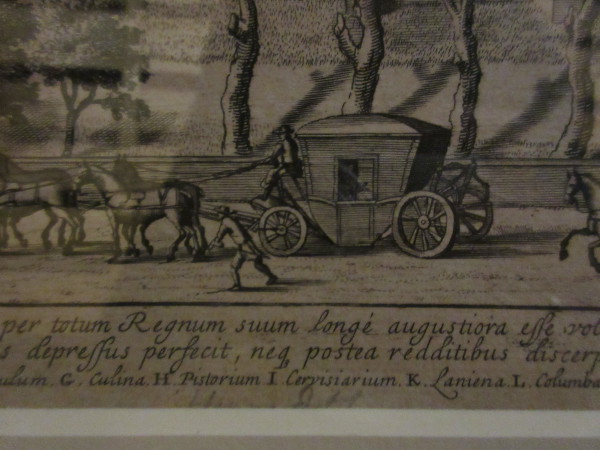 per totum Regnum suum longé augustiora eſſe vol
s depreſſus perfecit, neq postea redditibus discerp
ulum. G. Culina. H. Pistorium I. Cervisiarium. K. Laniena. L. Columba